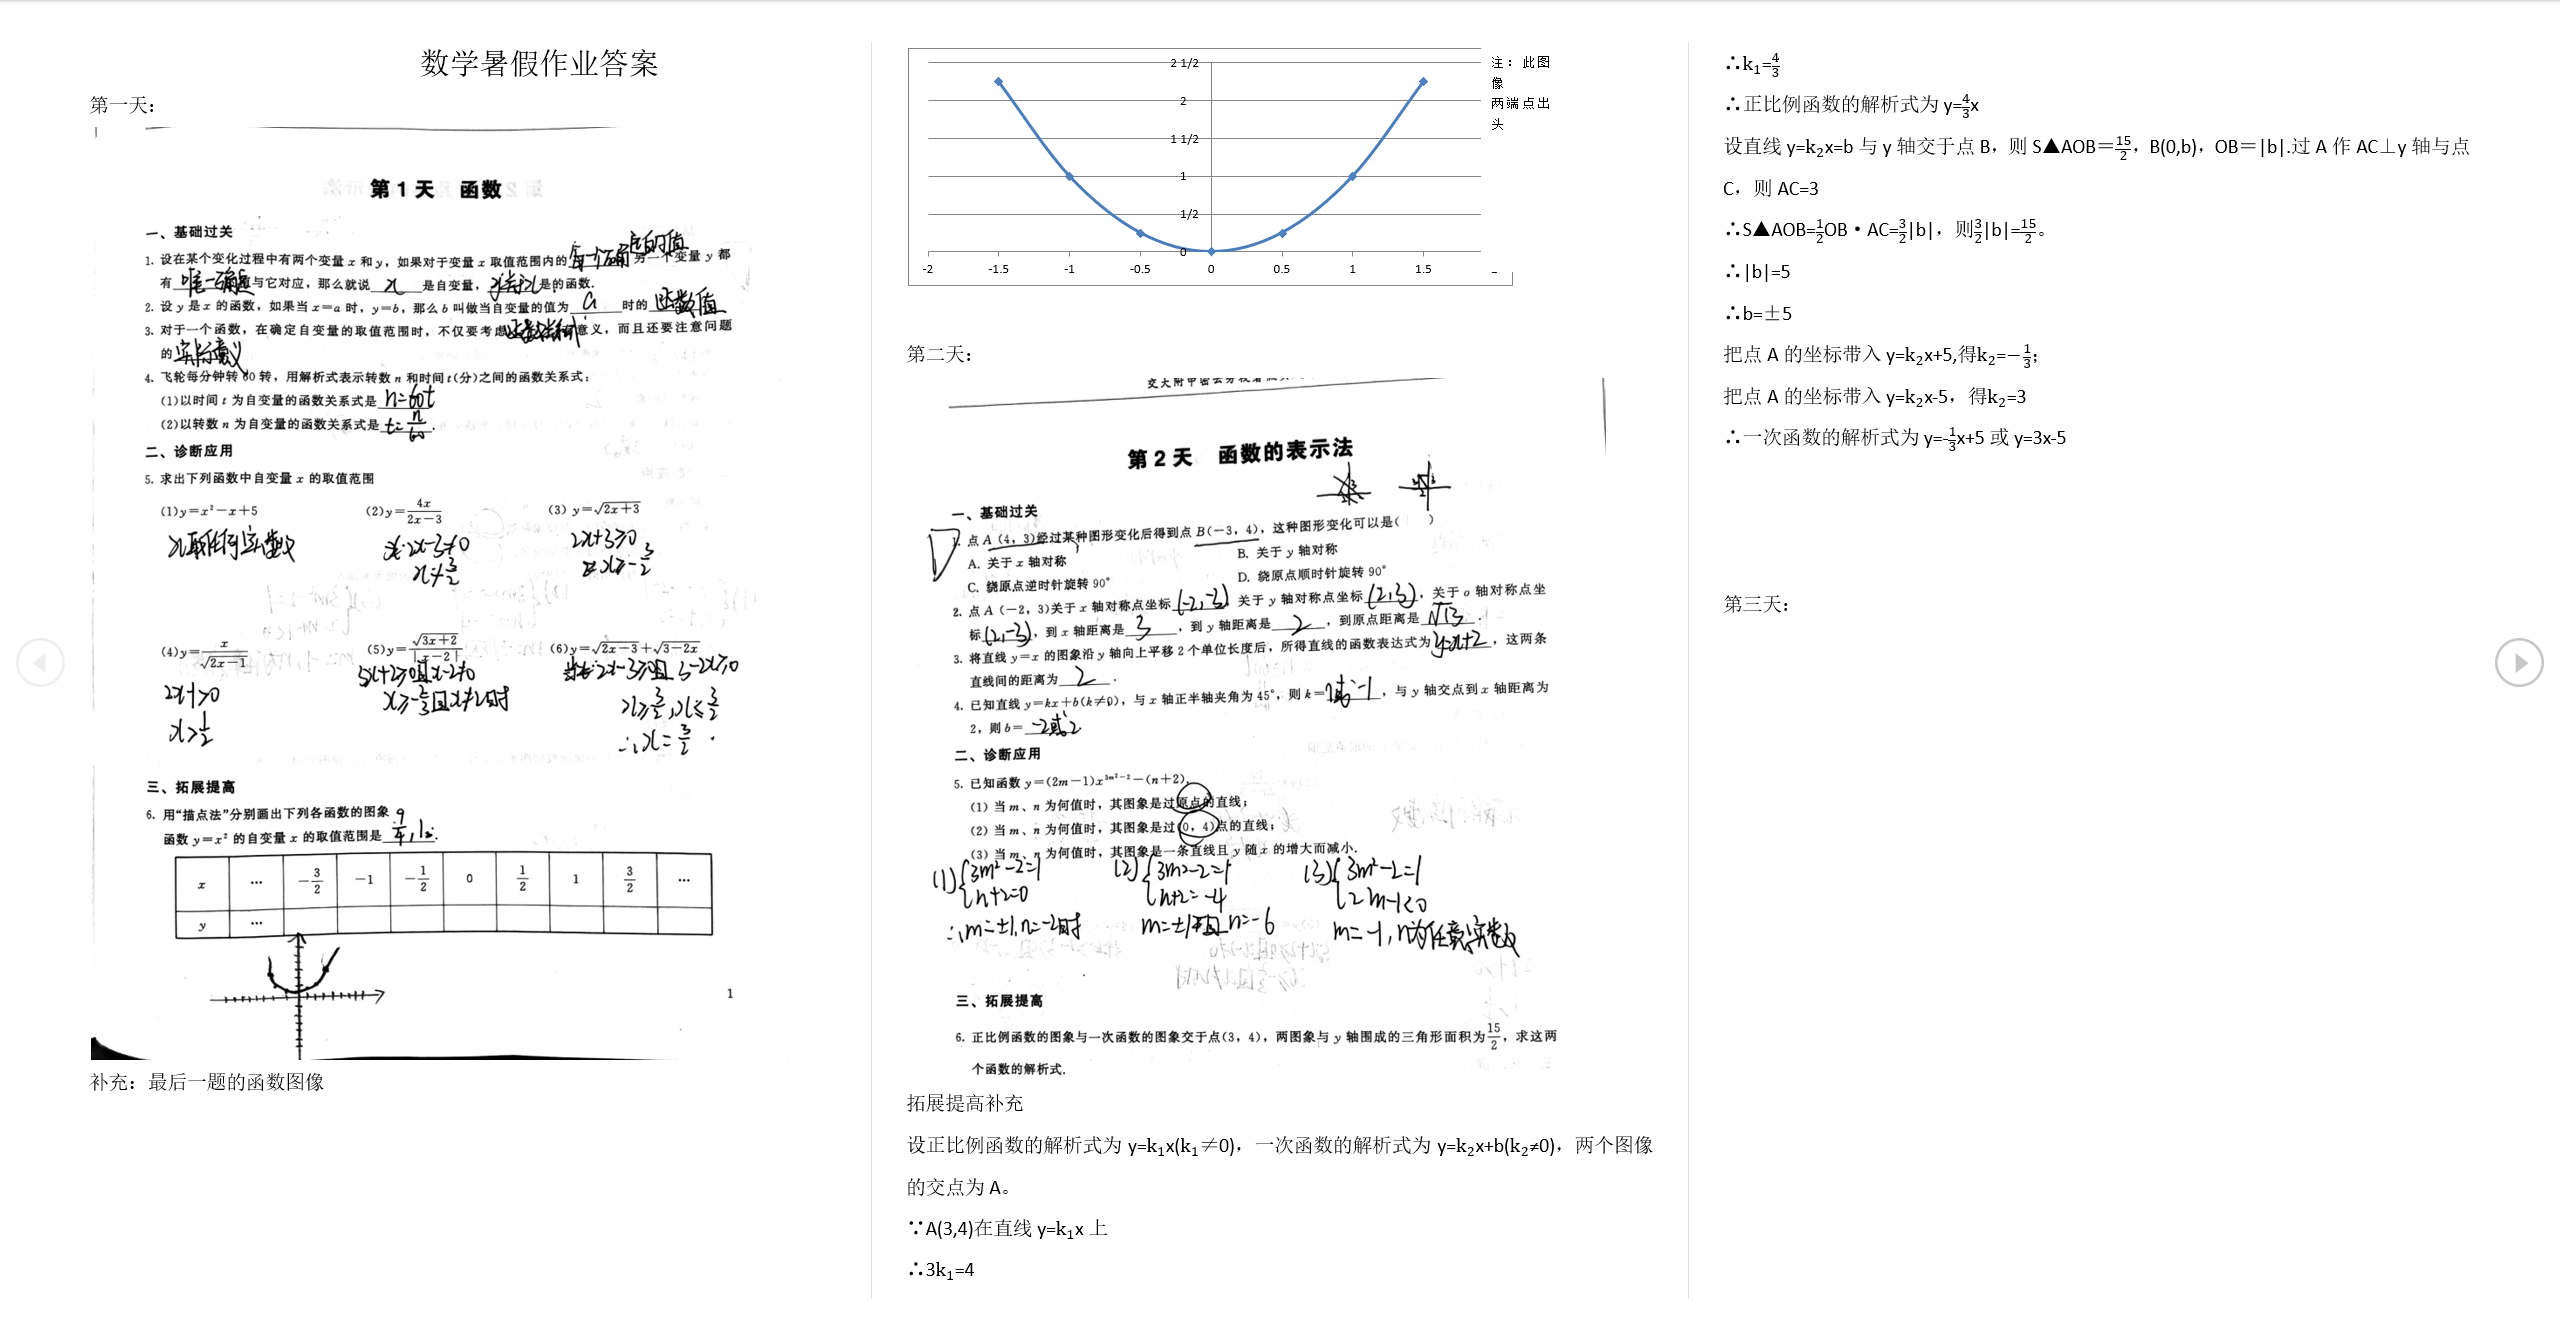 数学暑假作业答案
第一天：
第1天 函数
一、基础过关
1. 设在某个变化过程中有两个变量 x 和 y，如果对于变量 x 取值范围内的每一个确定的值 另一个变量 y 都
有 唯一确定 与它对应，那么就说 x 是自变量， 是的函数.
2. 设 y 是 x 的函数，如果当 x=a 时，y=b，那么 b 叫做当自变量的值为 a 时的 函数值
3. 对于一个函数，在确定自变量的取值范围时，不仅要考虑 意义，而且还要注意问题
的 实际意义
4. 飞轮每分钟转 60 转，用解析式表示转数 n 和时间 t(分)之间的函数关系式：
(1)以时间 t 为自变量的函数关系式是 n=60t
(2)以转数 n 为自变量的函数关系式是 t=n/60.
二、诊断应用
5. 求出下列函数中自变量 x 的取值范围
(1)y=x²-x+5 (2)y=4x/(2x-3) (3) y=√(2x+3)
x取任何实数 2x-3≠0 2x+3≥0
x≠3/2 x≥-3/2
(4)y=x/√(2x-1) (5)y=√(3x+2)/|x-2| (6)y=√(2x-3)+√(3-2x)
2x-1>0 3x+2≥0且x-2≠0 2x-3≥0且3-2x≥0
x>1/2 x≥-2/3且x≠2时 x≥3/2,x≤3/2
∴x=3/2.
三、拓展提高
6. 用“描点法”分别画出下列各函数的图象
函数 y=x² 的自变量 x 的取值范围是 9/4,1.
x … -3/2 -1 -1/2 0 1/2 1 3/2 …
y …
1
补充：最后一题的函数图像
2 1/2
2
1 1/2
1
1/2
0
-2 -1.5 -1 -0.5 0 0.5 1 1.5
注：此图
像
两端点出
头
第二天：
第2天 函数的表示法
一、基础过关
D 1. 点 A (4, 3)经过某种图形变化后得到点 B(-3, 4)，这种图形变化可以是( )
A. 关于 x 轴对称 B. 关于 y 轴对称
C. 绕原点逆时针旋转 90° D. 绕原点顺时针旋转 90°
2. 点 A (-2, 3)关于 x 轴对称点坐标 (-2,-3)，关于 y 轴对称点坐标 (2,3)，关于 o 轴对称点坐
标 (2,-3)，到 x 轴距离是 3，到 y 轴距离是 2，到原点距离是 √13.
3. 将直线 y=x 的图象沿 y 轴向上平移 2 个单位长度后，所得直线的函数表达式为 y=x+2，这两条
直线间的距离为 2.
4. 已知直线 y=kx+b(k≠0)，与 x 轴正半轴夹角为 45°，则 k= 1或-1，与 y 轴交点到 x 轴距离为
2，则 b= -2或2.
二、诊断应用
5. 已知函数 y=(2m-1)x^(3m²-2)-(n+2)，
(1) 当 m、n 为何值时，其图象是过原点的直线；
(2) 当 m、n 为何值时，其图象是过(0, 4)点的直线；
(3) 当 m、n 为何值时，其图象是一条直线且 y 随 x 的增大而减小.
(1){3m²-2=1 (2){3m²-2=1 (3){3m²-2=1
n+2=0 n+2=-4 2m-1<0
∴m=±1,n=-2时 m=±1且n=-6 m=-1,n为任意实数
三、拓展提高
6. 正比例函数的图象与一次函数的图象交于点(3, 4)，两图象与 y 轴围成的三角形面积为15/2，求这两
个函数的解析式.
拓展提高补充
设正比例函数的解析式为 y=k₁x(k₁≠0)，一次函数的解析式为 y=k₂x+b(k₂≠0)，两个图像
的交点为 A。
∵A(3,4)在直线 y=k₁x 上
∴3k₁=4
∴k₁=4/3
∴正比例函数的解析式为 y=4/3x
设直线 y=k₂x=b 与 y 轴交于点 B，则 S▲AOB＝15/2，B(0,b)，OB＝|b|.过 A 作 AC⊥y 轴与点
C，则 AC=3
∴S▲AOB=1/2OB·AC=3/2|b|，则3/2|b|=15/2。
∴|b|=5
∴b=±5
把点 A 的坐标带入 y=k₂x+5,得k₂=−1/3；
把点 A 的坐标带入 y=k₂x-5，得k₂=3
∴一次函数的解析式为 y=-1/3x+5 或 y=3x-5
第三天：